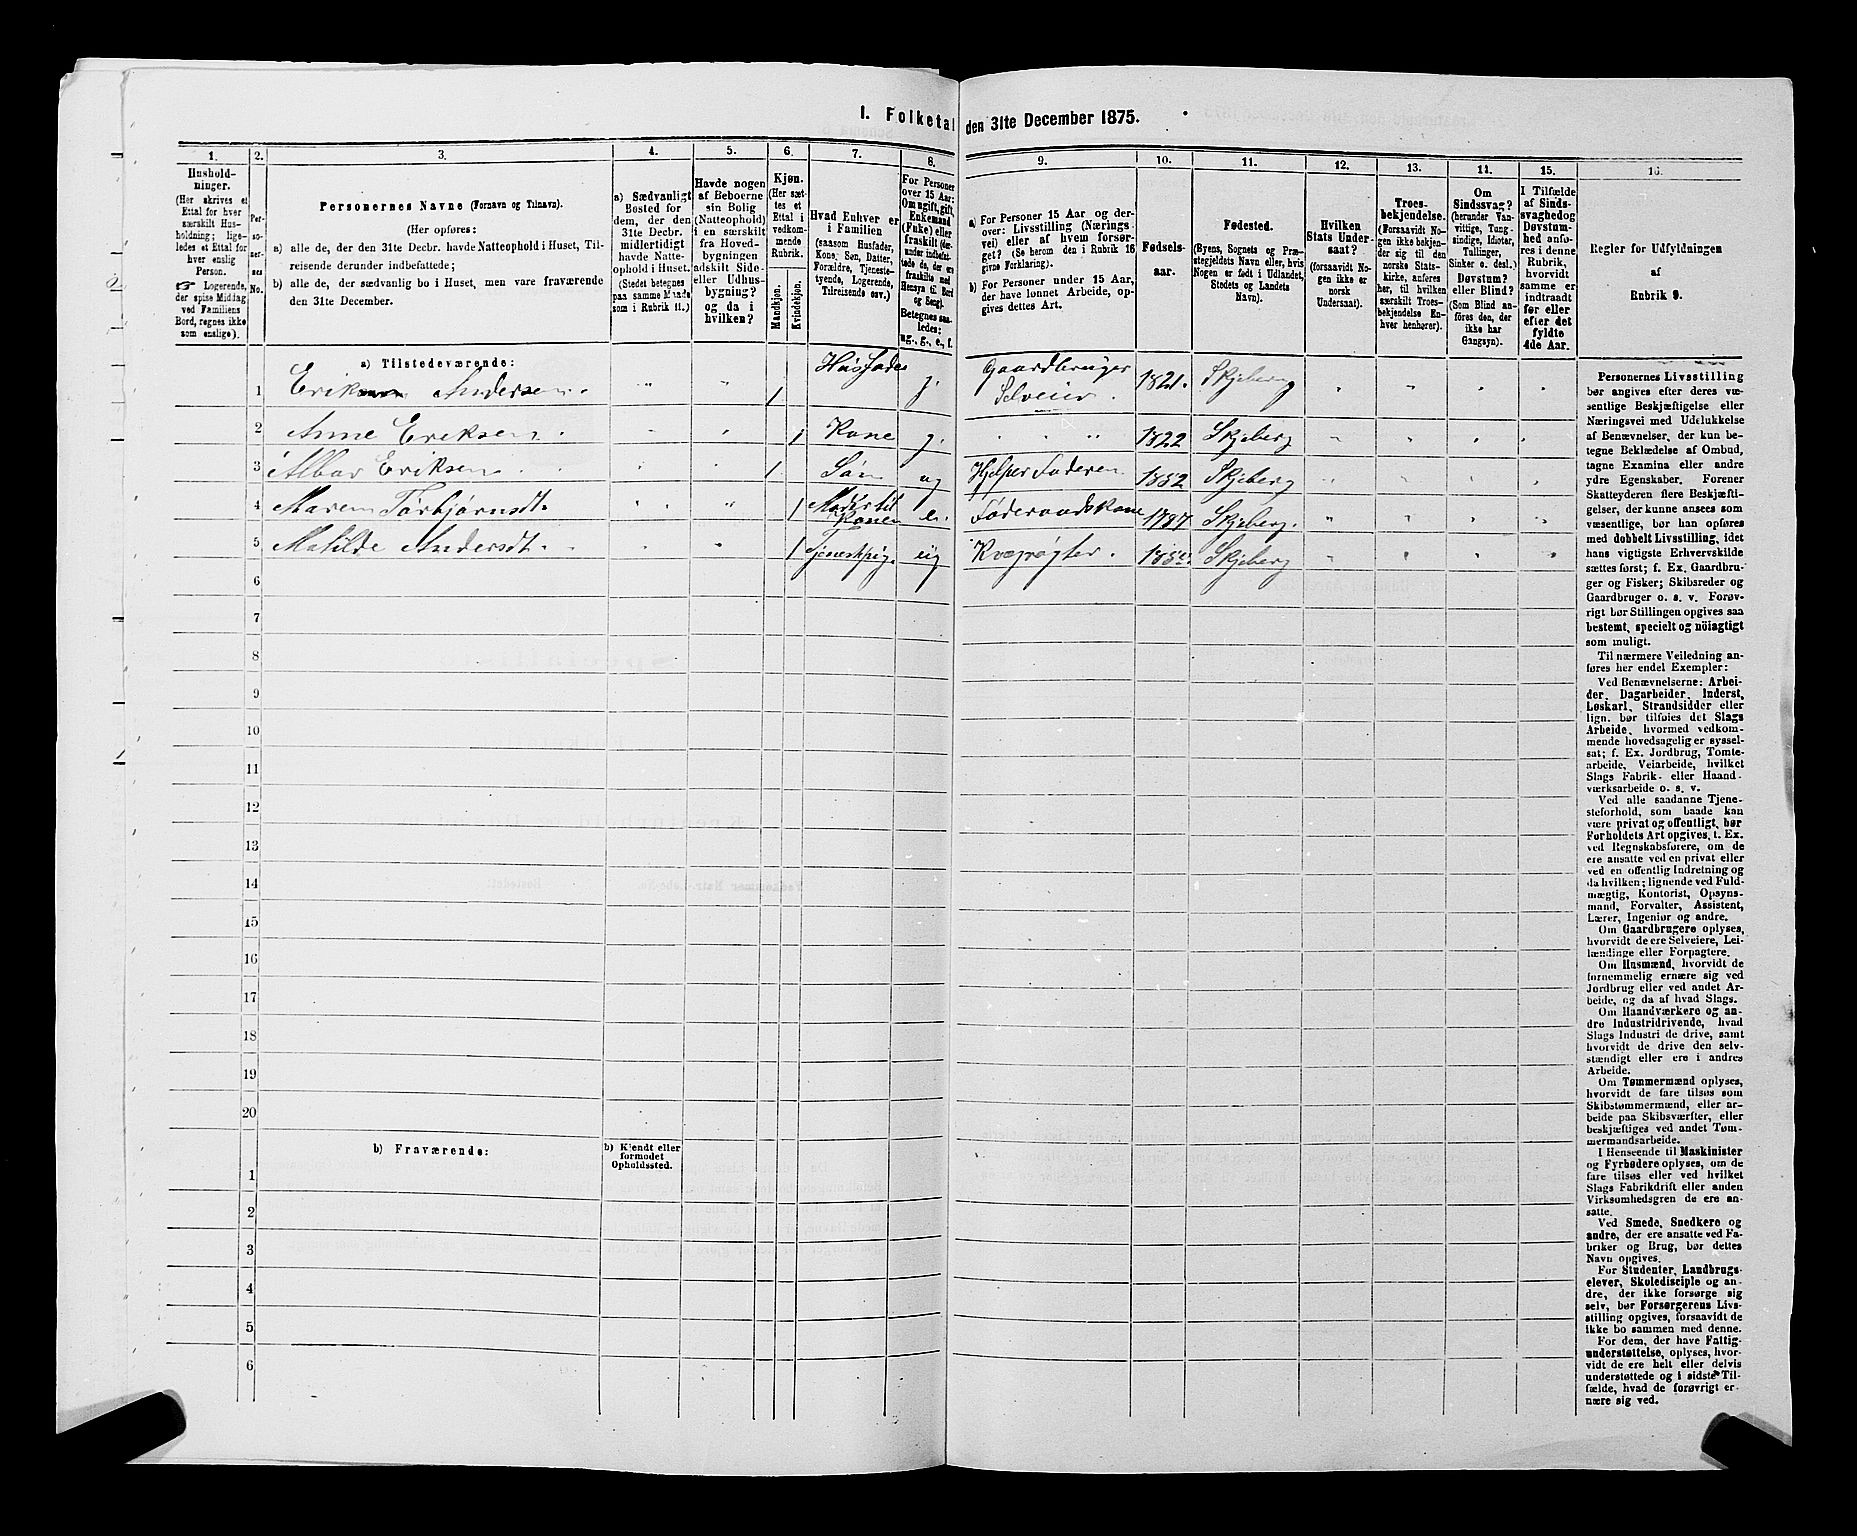 I. Folketal
den 31te December 1875.
1. 2. 3. 4. 5. 6. 7. 8. 9. 10. 11. 12. 13. 14. 15. 16.
Hushold-
ninger.
(Her skrives et
Ettal for hver
særskilt Hus-
holdning; lige-
ledes et Ettal for
hver enslig
Person.
☞ Logerende,
der spise Middag
ved Familiens
Bord, regnes ikke
som enslige).
Per-
so-
ner-
nes
No.
Personernes Navne (Fornavn og Tilnavn).
(Her opføres:
a) alle de, der den 31te Decbr. havde Natteophold i Huset, Til-
reisende derunder indbefattede;
b) alle de, der sædvanlig bo i Huset, men vare fraværende
den 31te December.
a) Sædvanligt
Bosted for
dem, der den
31te Decbr.
midlertidigt
havde Natte-
ophold i Huset.
(Stedet betegnes
paa samme Maade
som i Rubrik 11.)
Havde nogen
af Beboerne
sin Bolig
(Natteophold)
i en særskilt
fra Hoved-
bygningen
adskilt Side-
eller Udhus-
bygning?
og da i
hvilken?
Kjøn.
(Her sæt-
tes et
Ettal i
vedkom-
mende
Rubrik.
Mandkjøn.
Kvindekjøn.
Hvad Enhver er
i Familien
(saasom Husfader,
Kone, Søn, Datter,
Forældre, Tjeneste-
tyende, Logerende,
Tilreisende osv.)
For Personer
over 15 Aar:
Om ugift, gift,
Enkemand
(Enke) eller
fraskilt (der-
under indbefat-
tede de, der ere
fraskilte med
Hensyn til Bord
og Seng).
Betegnes saa-
ledes:
ug., g., e., f.
a) For Personer 15 Aar og der-
over: Livsstilling (Nærings-
vei) eller af hvem forsør-
get? (Se herom den i Rubrik 16
givne Forklaring).
b) For Personer under 15 Aar,
der have lønnet Arbeide, op-
gives dettes Art.
Fødsels-
aar.
Fødested.
(Byens, Sognets og Præ-
stegjeldets Navn eller, hvis
Nogen er født i Udlandet,
Stedets og Landets
Navn).
Hvilken
Stats Under-
saat?
(forsaavidt No-
gen ikke er
norsk
Undersaat).
Troes-
bekjendelse.
(Forsaavidt No-
gen ikke bekjen-
der sig til den
norske Stats-
kirke, anføres
her, til hvilken
særskilt Troes-
bekjendelse En-
hver henhører).
Om
Sindssvag?
(herunder Van-
vittige, Tung-
sindige, Idioter,
Tullinger,
Sinker o. desl.)
Døvstum?
eller Blind?
(Som Blind an-
føres den, der
ikke har
Gangsyn).
I Tilfælde
af Sinds-
svaghedog
Døvstum-
hed anfø-
res i denne
Rubrik,
hvorvidt
samme er
indtraadt
før eller
efter det
fyldte
4de Aar.
Regler for Udfyldningen
af
Rubrik 9.
a) Tilstedeværende:
1 Andersen. " " 1 Husfader g. Gaardbruger Selveier. 1821. Skjeberg " " " "
2 Anne Eriksen. " " 1 Kone g. " " " 1822 Skjeberg " " " "
3 Albar Eriksen " " 1 Søn ug Hjelper Faderen 1852 Skjeberg " " " "
4 Maren Torbjørnsdt. " " 1 Moder til Konen e. Føderaadskone 1787 Skjeberg. " " " "
5 Matilde Andersdt. " " 1 Tjenestpig. ug Kvægrøgter. Skjeberg " " " "
6
7
8
9
10
11
12
13
14
15
16
17
18
19
20
b) Fraværende:
b) Kjendt eller
formodet
Opholdssted.
1
2
3
4
5
6
Personernes Livsstilling
bør angives efter deres væ-
sentlige Beskjæftigelse eller
Næringsvei med Udelukkelse
af Benævnelser, der kun be-
tegne Beklædelse af Ombud,
tagne Examina eller andre
ydre Egenskaber. Forener
Skatteyderen flere Beskjæfti-
gelser, der kunne ansees som
væsentlige, bør han opføres
med dobbelt Livsstilling, idet
hans vigtigste Erhvervskilde
sættes først; f. Ex. Gaardbru-
ger og Fisker; Skibsreder og
Gaardbruger o. s. v. Forøv-
rigt bør Stillingen opgives saa
bestemt, specielt og nöiagtigt
som muligt.
Til nærmere Veiledning an-
føres her endel Exempler:
Ved Benævnelserne: Arbei-
der, Dagarbeider, Inderst,
Løskarl, Strandsidder eller
lign. bør tilføies det Slags
Arbeide, hvormed vedkom-
mende hovedsagelig er syssel-
sat; f. Ex. Jordbrug, Tomte-
arbeide, Veiarbeide, hvilket
Slags Fabrik- eller Haand-
værksarbeide o. s. v.
Ved alle saadanne Tjene-
steforhold, som baade kan
være privat og offentligt, bør
Forholdets Art opgives, t. Ex.
ved Regnskabsførere, om de
ere ansatte ved en privat eller
ved en offentlig Indretning og
da hvilken; lignende ved Fuld-
mægtig, Kontorist, Opsyns-
mand, Forvalter, Assistent,
Lærer, Ingeniør og andre.
Om Gaardbrugere oplyses,
hvorvidt de ere Selveiere, Lei-
lændinge eller Forpagtere.
Om Husmænd, hvorvidt de
fornemmelig ernære sig ved
Jordbrug eller ved andet Ar-
beide, og da af hvad Slags.
Om Haandværkere og an-
dre Industridrivende, hvad
Slags Industri de drive, samt
hvorvidt de drive den selv-
stændigt eller ere i andres
Arbeide.
Om Tømmermænd oplyses,
hvorvidt de fare tilsøs som
Skibstømmermænd, eller ar-
beide paa Skibsværfter, eller
beskjæftiges ved andet Tøm-
mermandsarbeide.
I Henseende til Maskinister
og Fyrbødere oplyses, om de
fare tilsøs eller ved hvilket
Slags Fabrikdrift eller anden
Virksomhedsgren de ere an-
satte.
Ved Smede, Snedkere og
andre, der ere ansatte ved Fa-
briker og Brug, bør dettes
Navn opgives.
For Studenter, Landbrugs-
elever, Skoledisciple og an-
dre, der ikke forsørge sig
selv, bør Forsørgerens Livs-
stilling opgives, forsaavidt de
ikke bo sammen med denne.
For dem, der have Fattig-
understøttelse, oplyses, hvor-
vidt de ere helt eller delvis
understøttede og i sidste Til-
fælde, hvad de forøvrigt er-
nære sig ved.